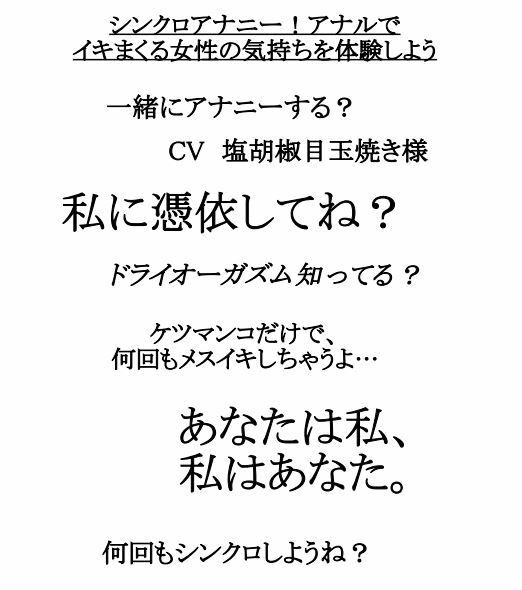 シンクロアナニー！アナルで
イキまくる女性の気持ちを体験しよう
一緒にアナニーする？
CV　塩胡椒目玉焼き様
私に憑依してね？
ドライオーガズム知ってる？
ケツマンコだけで、
何回もメスイキしちゃうよ…
あなたは私、
私はあなた。
何回もシンクロしようね？